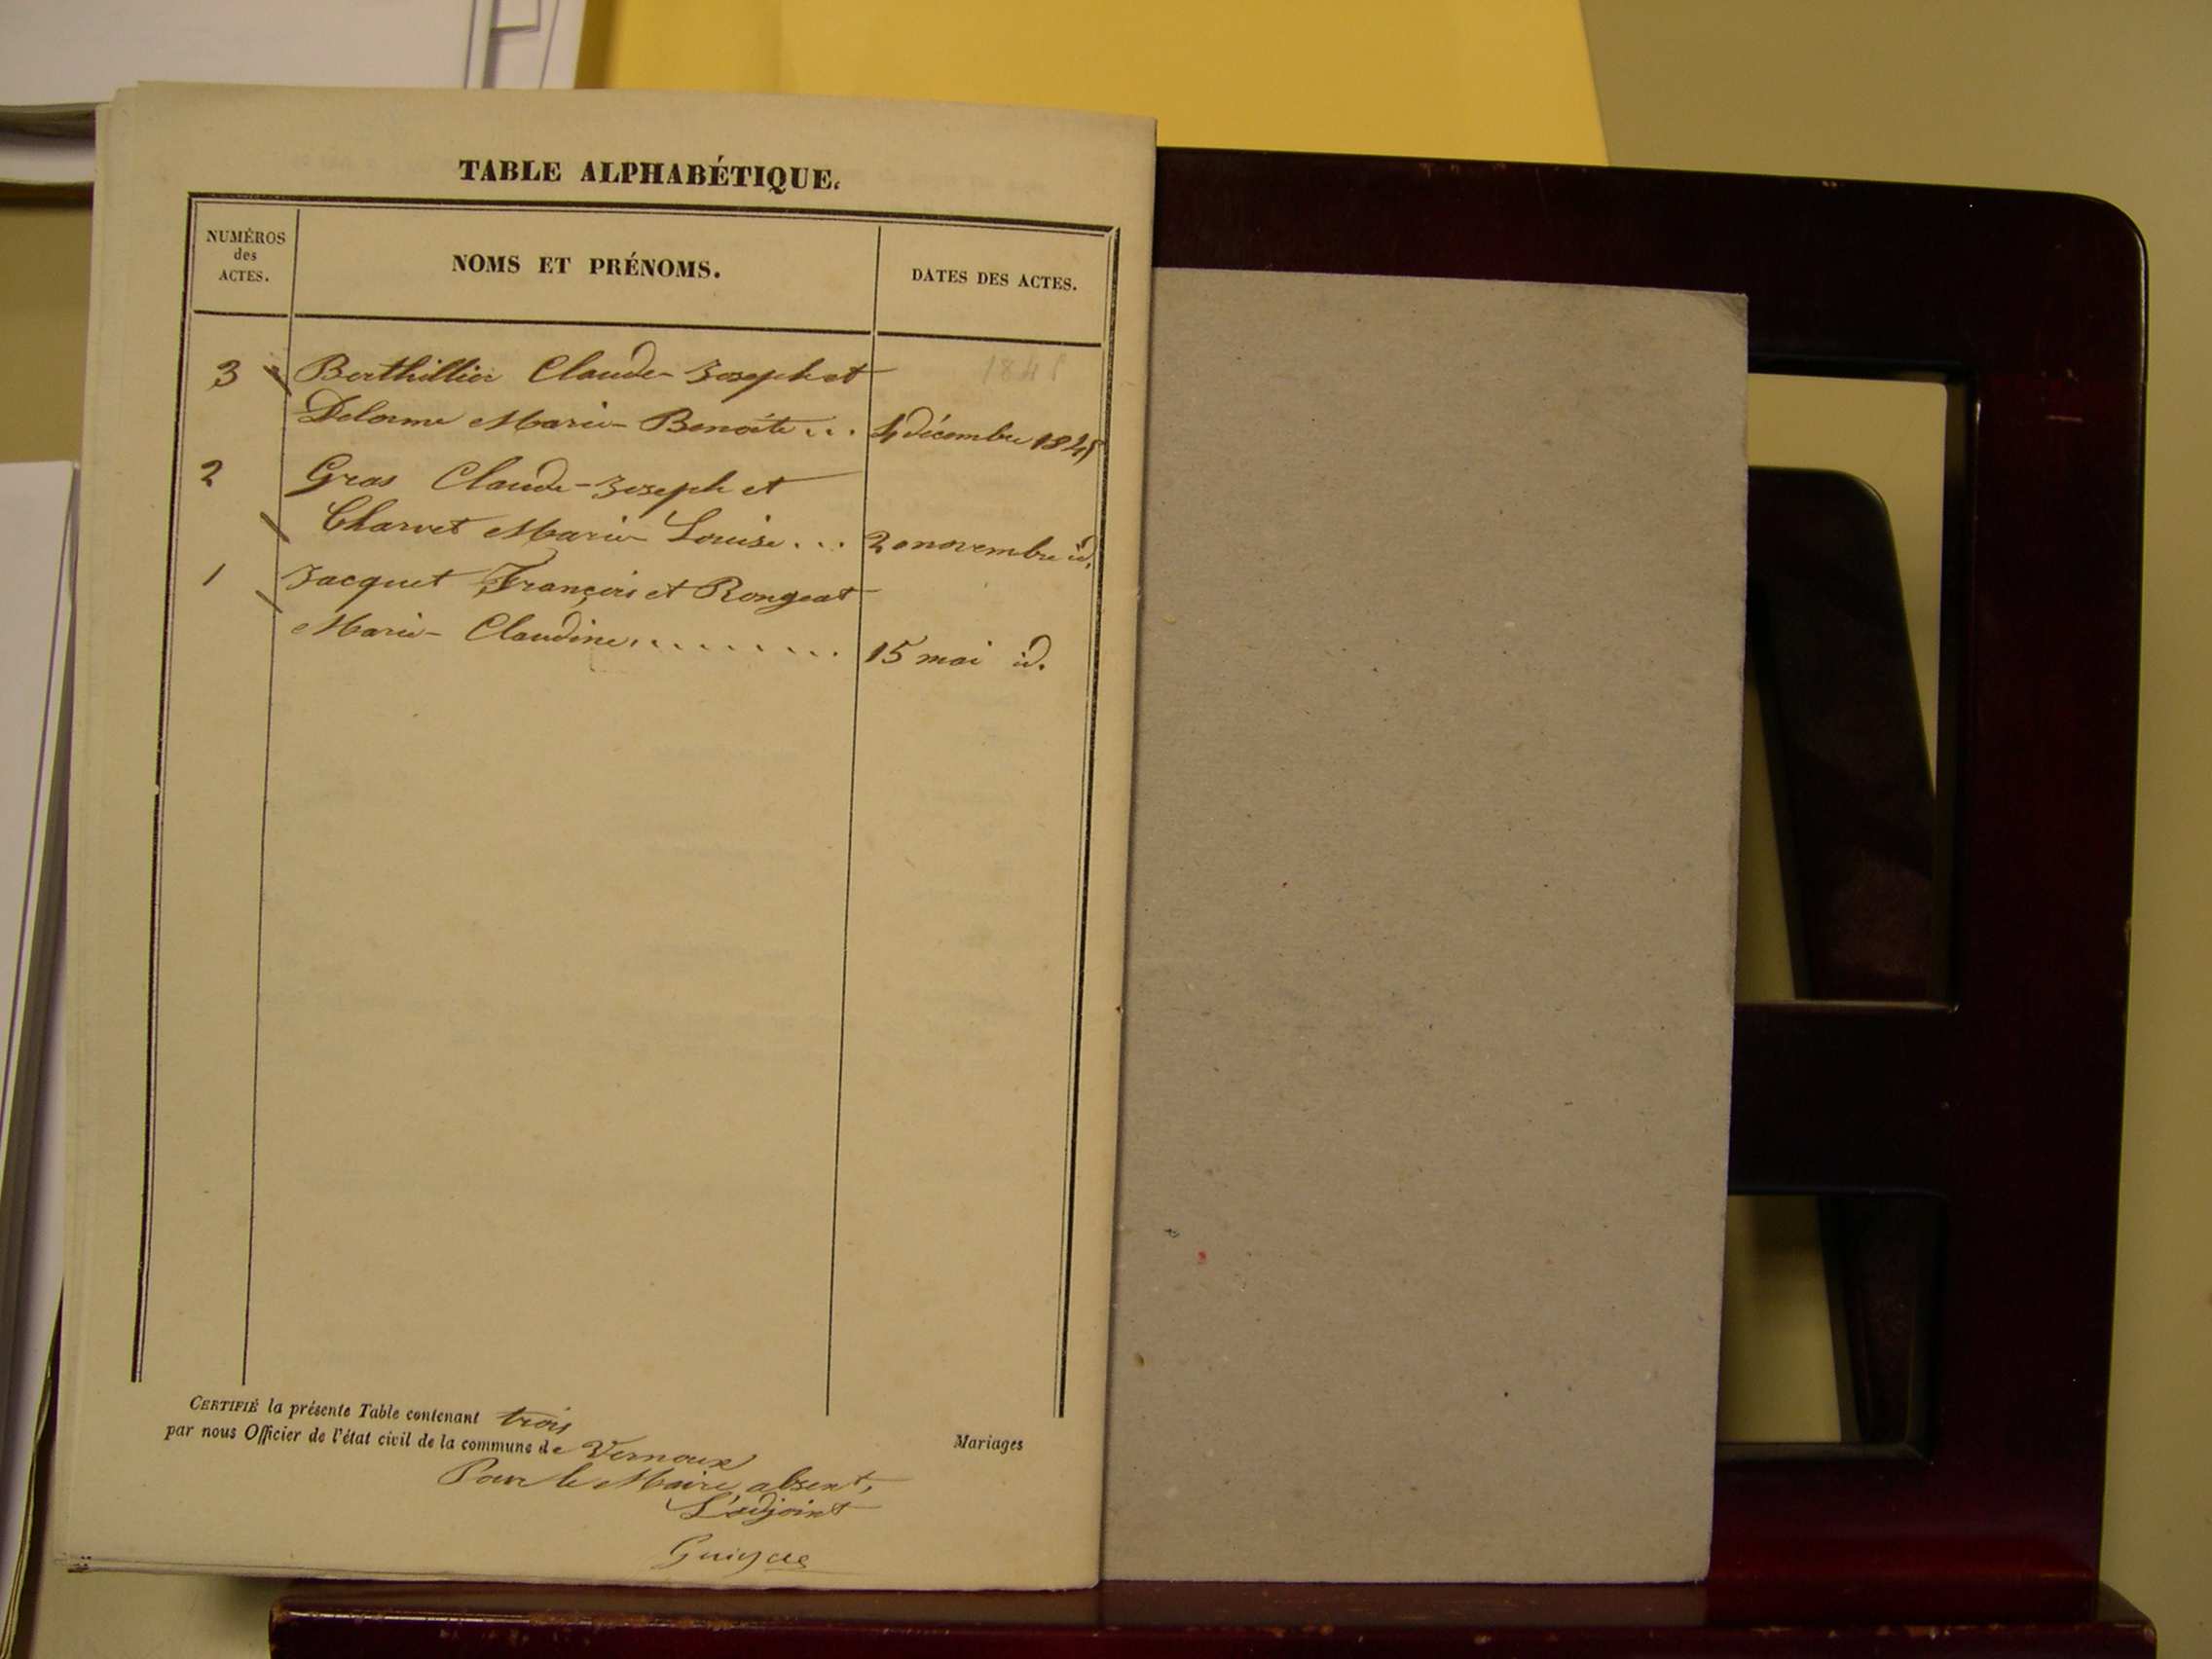 TABLE ALPHABÉTIQUE.
NUMÉROS
des
ACTES.
NOMS ET PRÉNOMS.
DATES DES ACTES.
3 Berthillier Claude-Joseph et
Delorme Marie-Benoite... 4 décembre
2 Gras Claude-Joseph et
Charvet Marie Louise... 20 novembre id.
1 Jacquet François et Rongeat
Marie-Claudine......... 15 mai id.
CERTIFIÉ la présente Table contenant trois
Mariages
par nous Officier de l'état civil de la commune de Vernoux
Pour le Maire absent,
L'adjoint